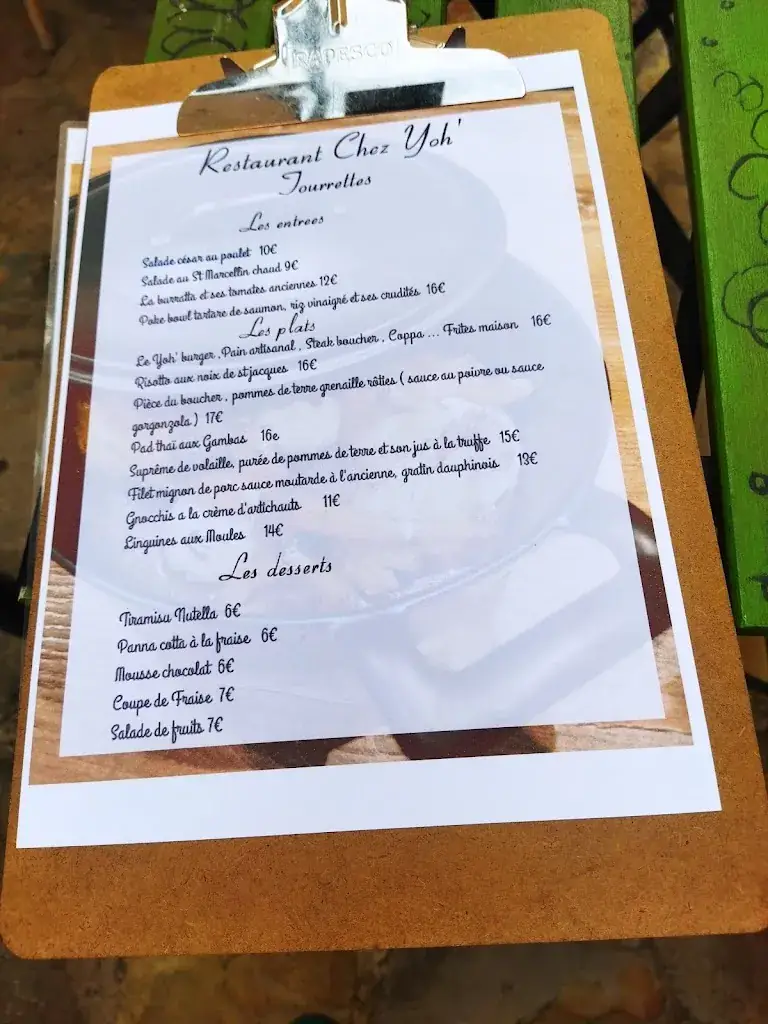 RADESCO
Restaurant Chez Yoh'
Tourrettes
Les entrees
Salade césar au poulet 10€
Salade au St Marcellin chaud 9€
La burratta et ses tomates anciennes 12€
Poke bowl tartare de saumon, riz vinaigré et ses crudités 16€
Les plats
Le Yoh' burger , Pain artisanal , Steak boucher , Coppa ... Frites maison 16€
Risotto aux noix de st jacques 16€
Pièce du boucher , pommes de terre grenaille rôties ( sauce au poivre ou sauce
gorgonzola ) 17€
Pad thaï aux Gambas 16e
Suprême de volaille, purée de pommes de terre et son jus à la truffe 15€
Filet mignon de porc sauce moutarde à l'ancienne, gratin dauphinois 13€
Gnocchis a la crème d'artichauts 11€
Linguines aux Moules 14€
Les desserts
Tiramisu Nutella 6€
Panna cotta à la fraise 6€
Mousse chocolat 6€
Coupe de Fraise 7€
Salade de fruits 7€